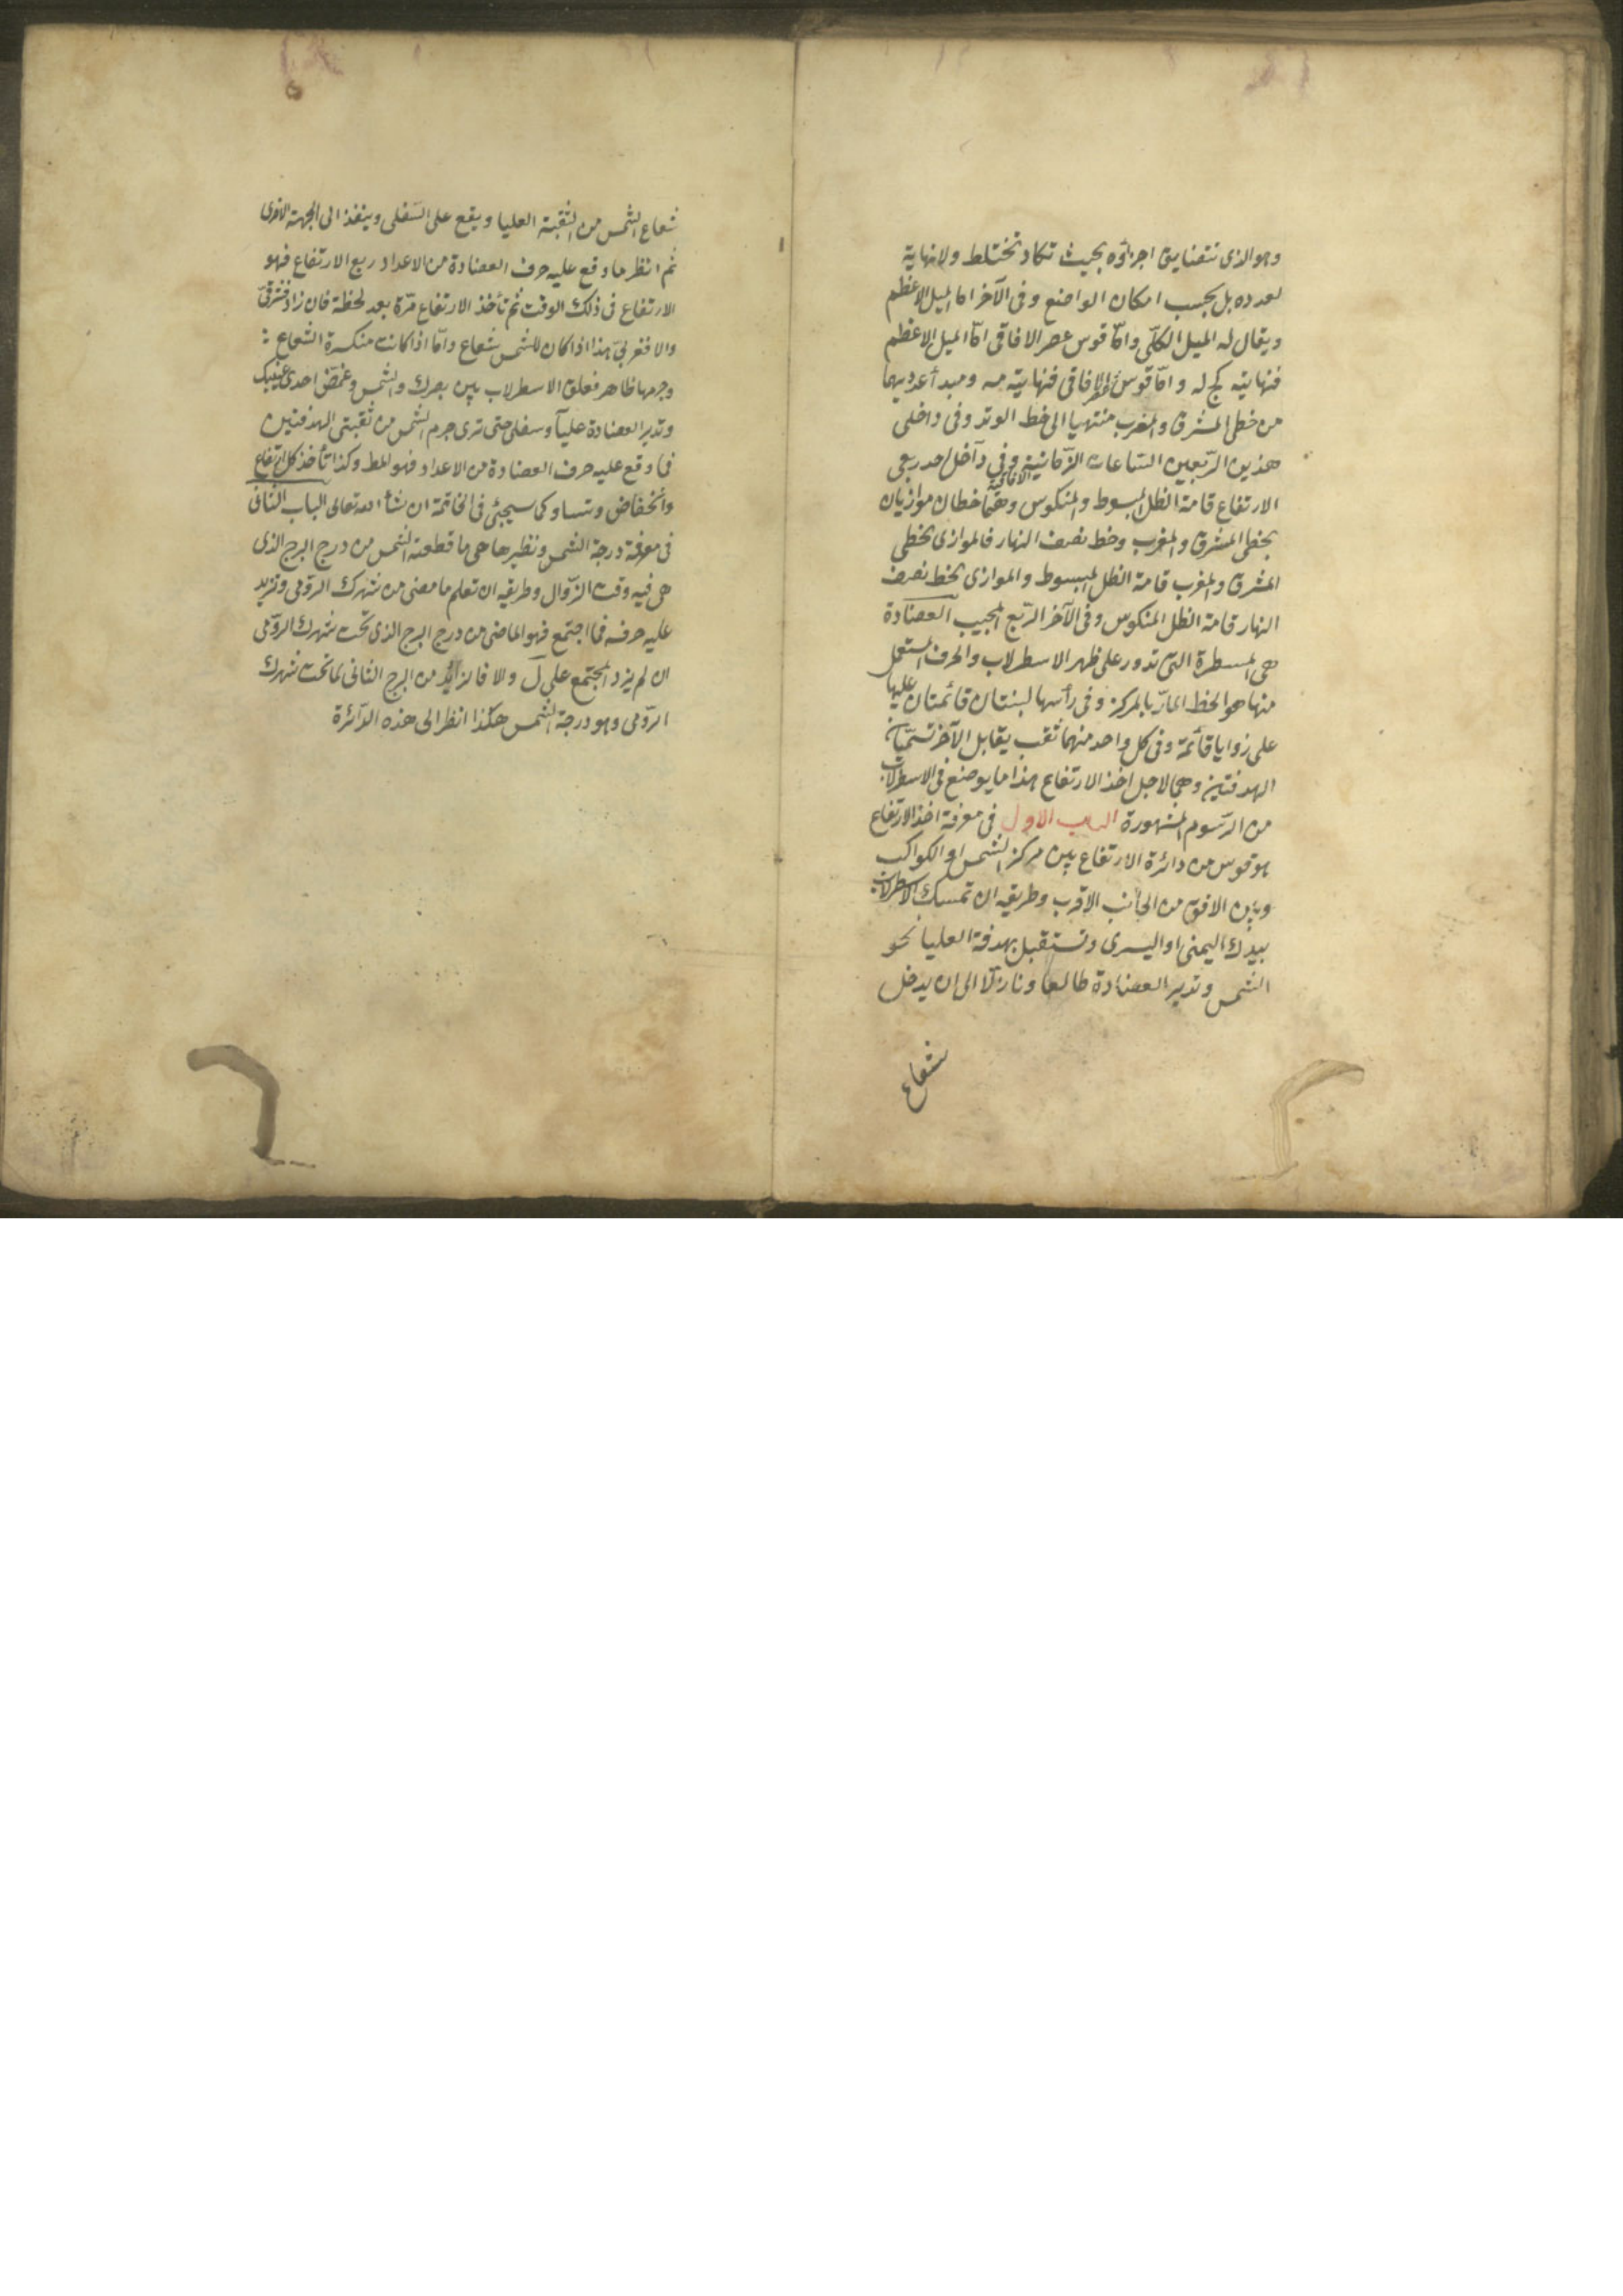 وهو الذى تتضايق اجزاؤه بحيث تكاد تختلط ولا نهاية
لعدده بل بحسب امكان الواضع وفى الآخر اما الميل الاعظم
ويقال له الميل الكلّى وامّا قوس عصر الافاقى امّا الميل الاعظم
فنهايته كج له وامّا قوس عصر الافاقى فنهايته مه ومبدأ عدديهما
من خطى المشرق والمغرب منتهيا الى خط الوتد وفى داخلى
هذين الربعين السّاعات الزّمانية الافاقية وفى داخل احد ربعى
الارتفاع قامة الظل المبسوط والمنكوس وهما خطان موازيان
بخطى المشرق والمغرب وخط نصف النهار فالموازى بخطى
المشرق والمغرب قامة الظل المبسوط والموازى بخط نصف
النهار قامة الظل المنكوس وفى الآخر الرّبع المجيب العضادة
هى المسطرة التى تدور على ظهر الاسطرلاب والحرف المستعمل
منها هو الخط المارّ بالمركز وفى رأسها لبنتان قائمتان عليها
على زوايا قائمة وفى كل واحد منهما ثقب يقابل الآخر تسمّيان
الهدفتين وهى لاجل اخذ الارتفاع هذا ما يوضع فى الاسطرلاب
من الرّسوم المشهورة الباب الاول فى معرفة اخذ الارتفاع
هو قوس من دائرة الارتفاع بين مركز الشمس او الكواكب
وبين الافق من الجانب الاقرب وطريقه ان تمسك الاسطرلاب
بيدك اليمنى او اليسرى وتستقبل بهدفة العليا نحو
الشمس وتدير العضادة طالعا ونازلا الى ان يدخل
شعاع
شعاع الشمس من الثقبة العليا ويقع على السّفلى وينفذ الى الجهة الاخرى
ثم انظر ما وقع عليه حرف العضادة من الاعداد ربع الارتفاع فهو
الارتفاع فى ذلك الوقت ثم تأخذ الارتفاع مرّة بعد لحظة فان زاد فشرقىّ
والا فغربىّ هذا اذا كان للشمس شعاع وامّا اذا كانت منكسرة الشعاع
وجرمها ظاهر فعلق الاسطرلاب بين بصرك والشمس وغمّض احدى عينيك
وتدير العضادة عليآ وسفلى حتى ترى جرم الشمس من ثقبتى الهدفتين
فما وقع عليه حرف العضادة من الاعداد فهو المط وكذا تأخذ كل ارتفاع
وانخفاض وتساو كما سيجئ فى الخاتمة ان شأ الله تعالى الباب الثانى
فى معرفة درجة الشمس ونظيرها هى ما قطعته الشمس من درج البرج الذى
هى فيه وقت الزّوال وطريقه ان تعلم ما مضى من شهرك الرّومى وتزيد
عليه حرفه فما اجتمع فهو الماضى من درج البرج الذى تحت شهرك الرّومى
ان لم يزد المجتمع على ل والا فالزائد من البرج الثانى لما تحت شهرك
الرّومى وهو درجة الشمس هكذا انظر الى هذه الدّائرة